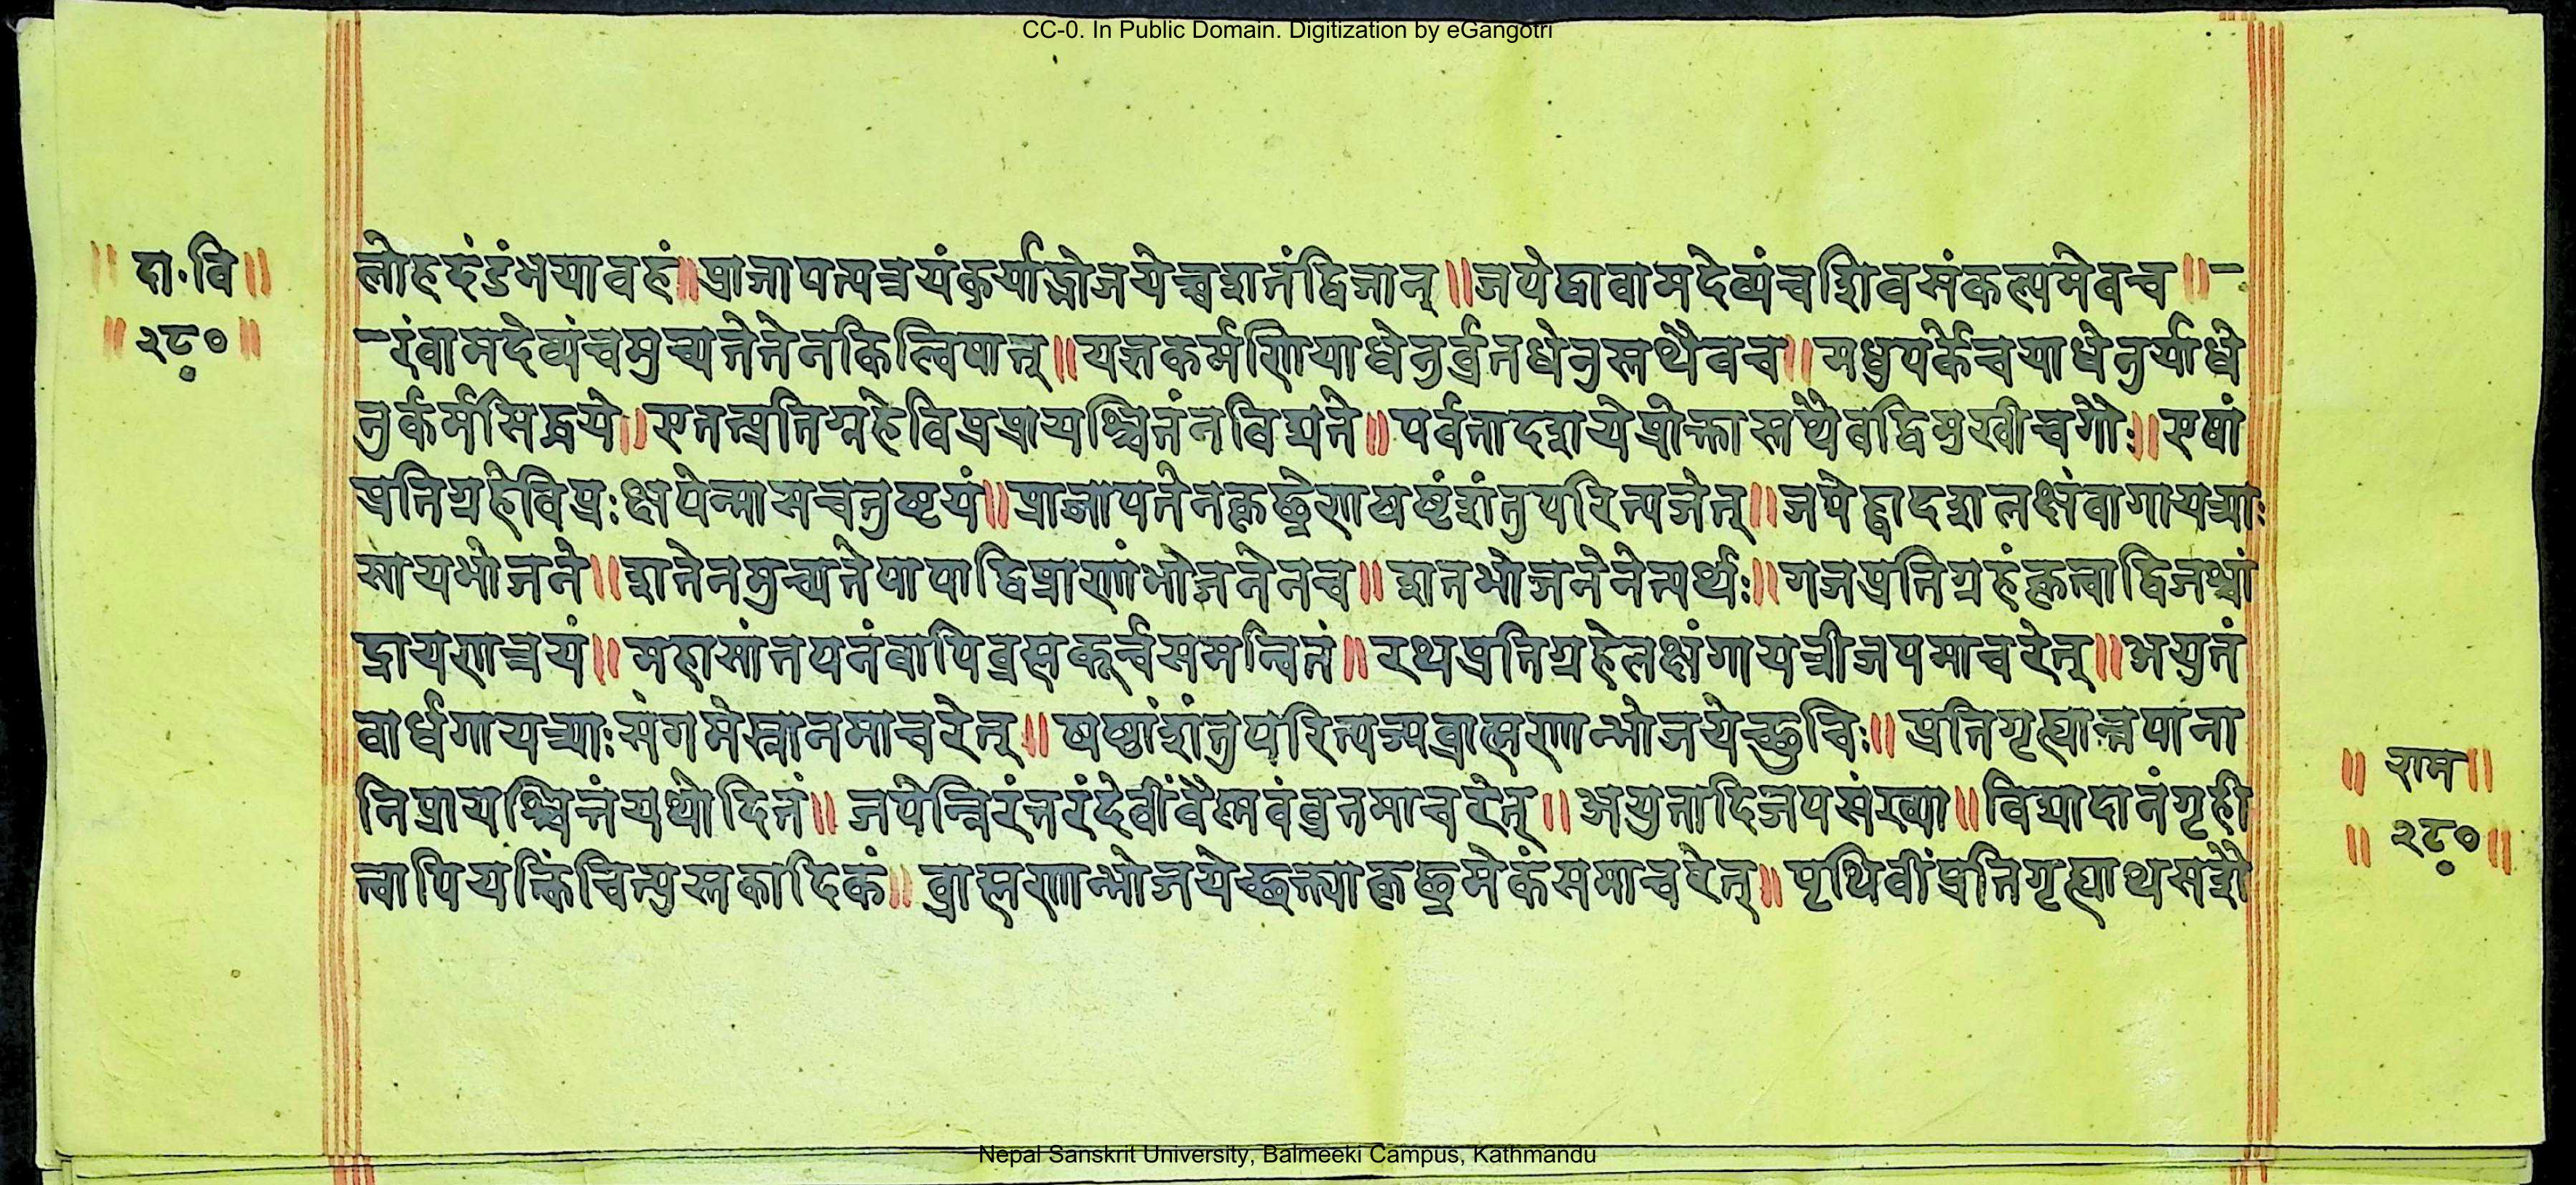 CC-0. In Public Domain. Digitization by eGangotri
॥ दा॰वि॥
॥ २८० ॥
लोहदंडंभयावहं॥प्राजापत्यत्रयंकुर्याद्भोजयेच्चशतंद्विजान्॥जपेद्वावामदेव्यंचशिवसंकल्पमेवच॥-
-रंवामदेव्यंचमुच्यतेतेनकिल्विषात्॥यज्ञकर्मणियाधेनुर्व्रतधेनुस्तथैवच॥मधुपर्केचयाधेनुर्याधे
नुर्कर्मसिद्धये॥एतत्प्रतिग्रहेविप्रप्रायश्चित्तंनविद्यते॥पर्वतादशयेप्रोक्तास्तथैवद्विमुखीचगौः॥एषां
प्रतिग्रहेविप्रःक्षपेन्मासचतुष्टयं॥प्राजापतेनकृछ्रेणषष्टंशंतुपरित्यजेत्॥जपेद्वादशलक्षंवागायत्र्याः
सायभोजने॥शतेनमुच्यतेपापाद्विप्राणांभोजनेनच॥शतभोजनेनेत्यर्थः॥गजप्रतिग्रहंकृत्वाद्विजश्चां
द्रायणत्रयं॥महासांतपनंवापिब्रह्मकूर्चसमन्वितं॥रथप्रतिग्रहेलक्षंगायत्रीजपमाचरेत्॥अयुतं
वार्धगायत्र्याःसंगमेस्नानमाचरेत्॥षष्ठांशंतुपरित्यज्यब्राह्मणान्भोजयेच्छुचिः॥प्रतिगृह्यान्नपाना
निप्रायश्चित्तंयथोदितं॥जपेन्निरंतरंदेवींवैष्णवंव्रतमाचरेत्॥अयुतादिजपसंख्या॥विद्यादानंगृही
त्वापियत्किंचित्पुस्तकादिकं॥ब्राह्मणान्भोजयेच्छक्त्याकृछ्रमेकंसमाचरेत्॥पृथिवींप्रतिगृह्याथसशै
॥ राम॥
॥ २८० ॥
Nepal Sanskrit University, Balmeeki Campus, Kathmandu